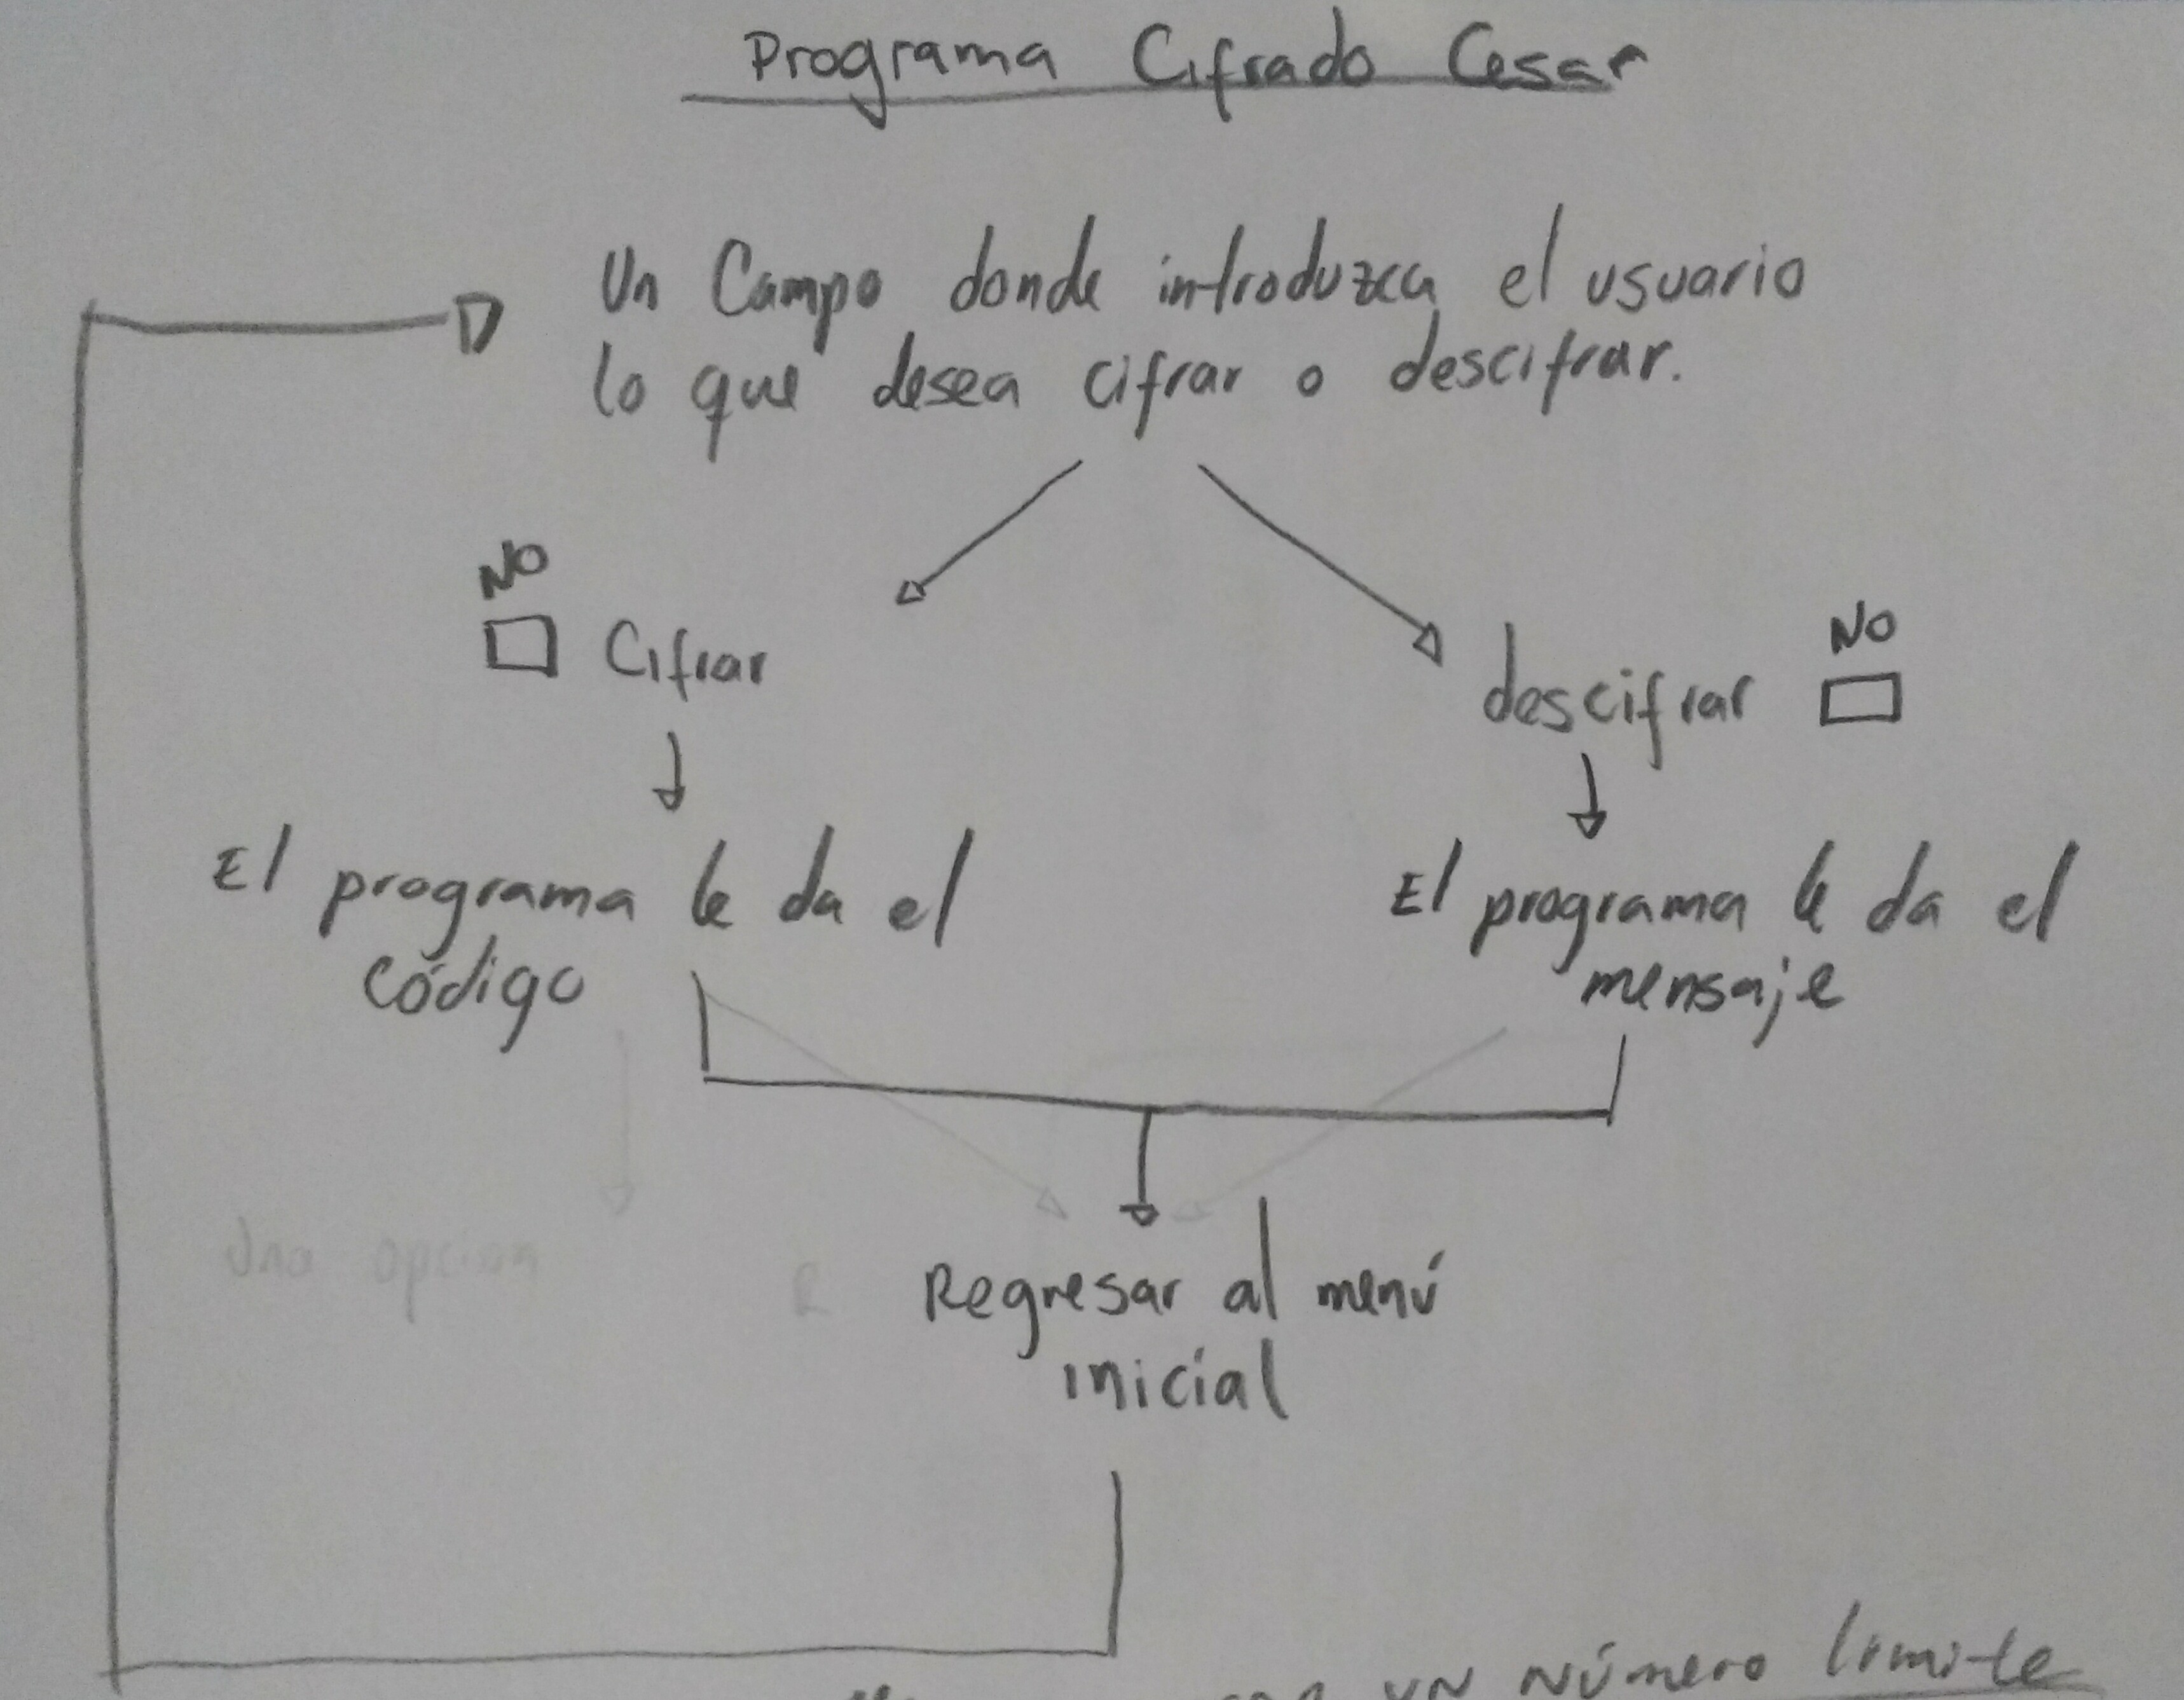 Programa Cifrado Cesar
Un Campo donde introduzca el usuario
lo que desea cifrar o descifrar.
NO
Cifrar
NO
descifrar
El programa le da el
código
El programa le da el
mensaje
Una opcion
R
Regresar al menú
inicial
un número limite